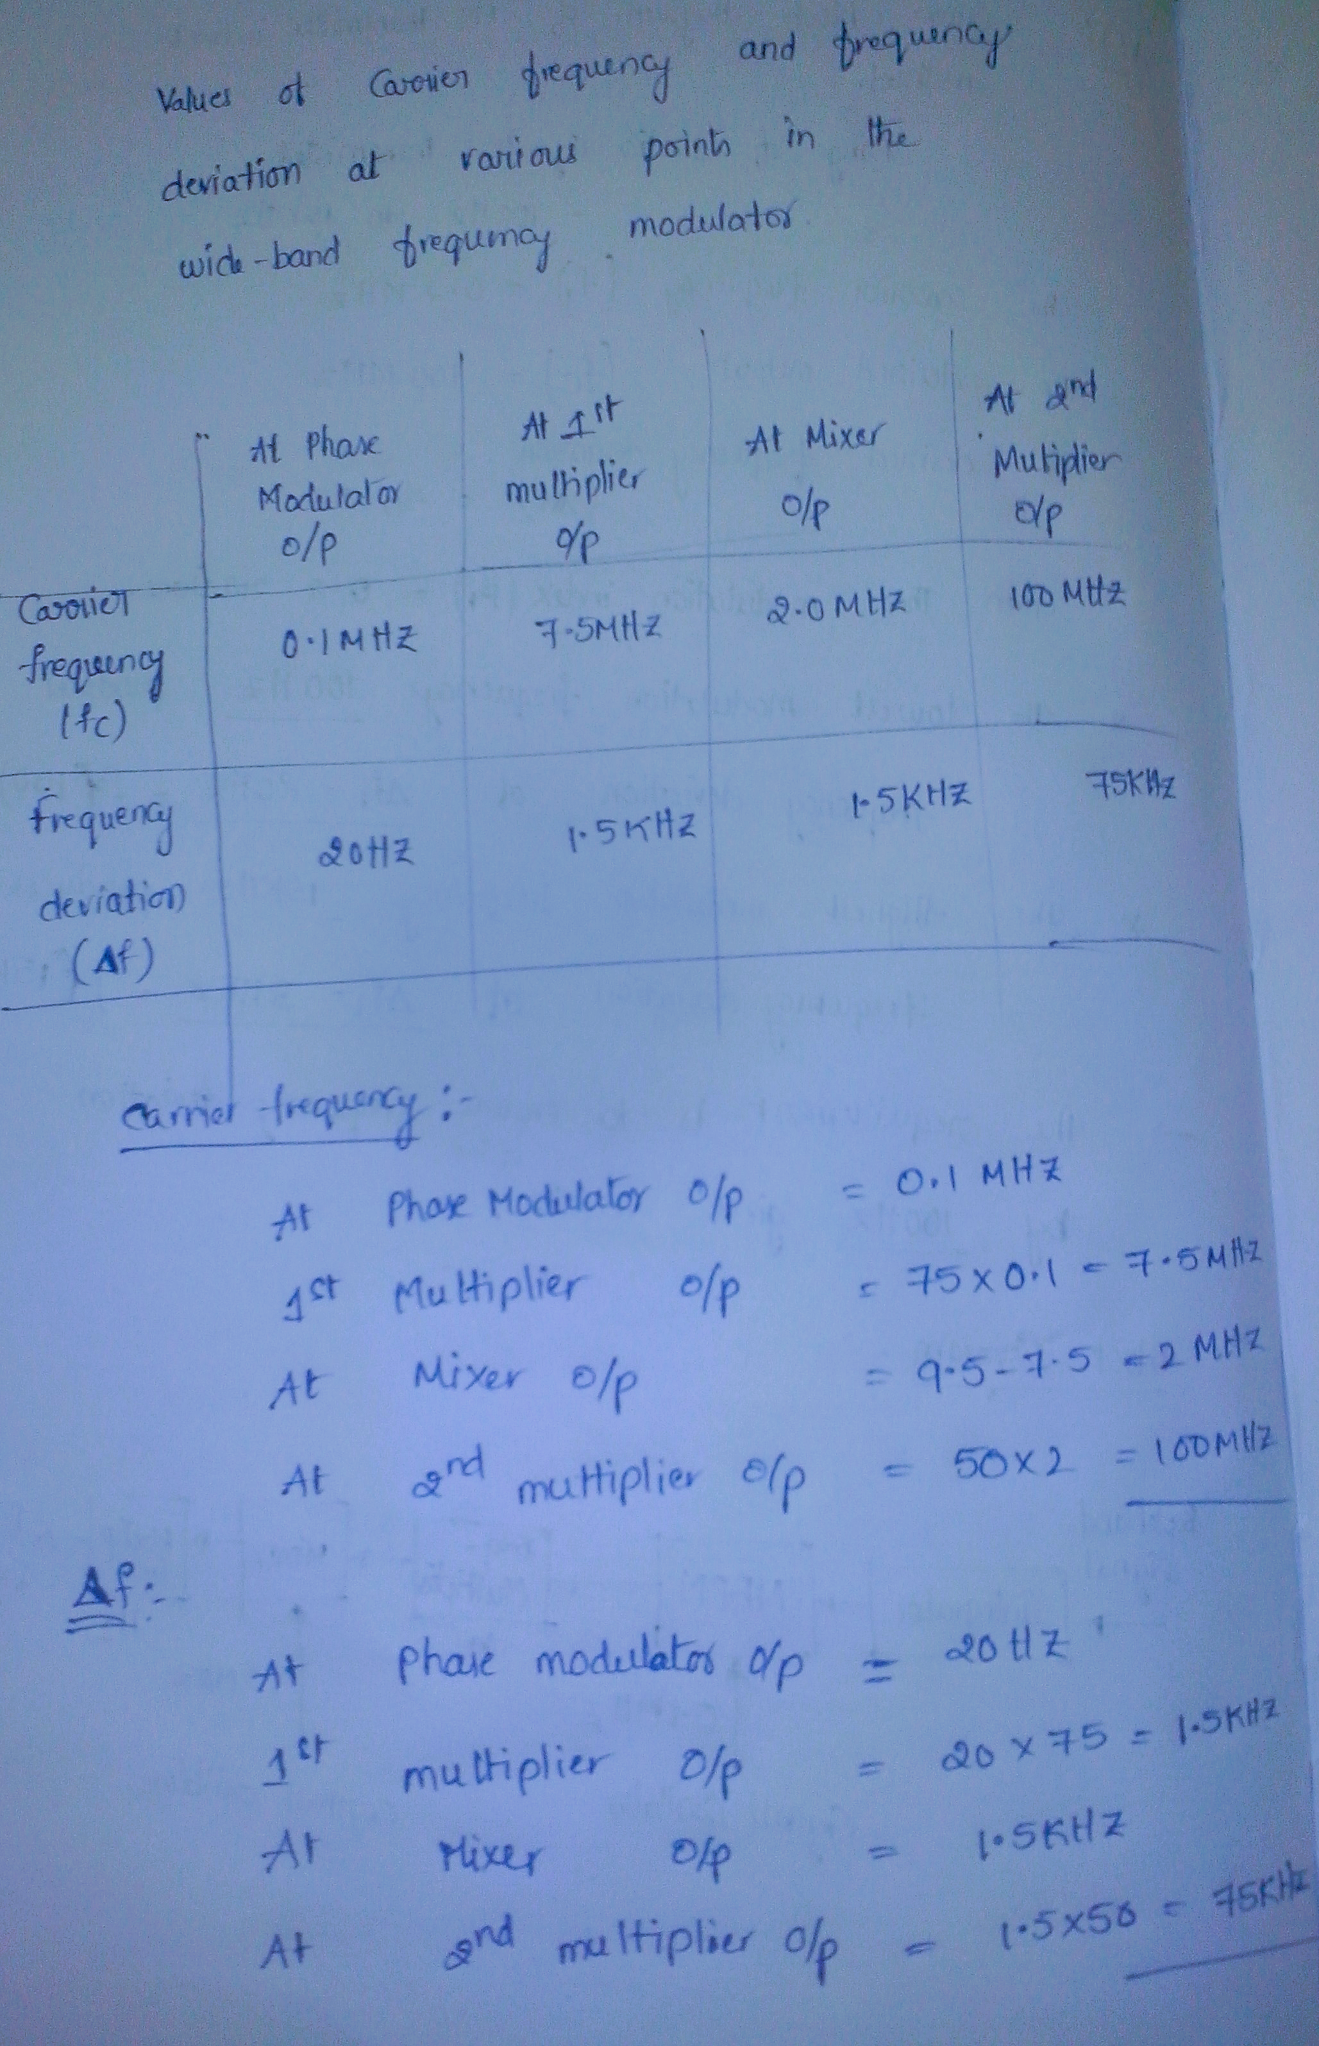 Values of Carrier frequency and frequency
deviation at various points in the
wide-band frequency modulator.
At Phase Modulator o/p
At 1st multiplier o/p
At Mixer o/p
At 2nd Mutiplier o/p
Carrier frequency (fc)
0.1MHZ 7.5MHZ 2.0MHZ 100 MHZ
Frequency deviation (Δf)
20HZ 1.5KHZ 1.5KHZ 75KHZ
Carrier frequency :-
At Phase Modulator o/p = 0.1 MHZ
1st Multiplier o/p = 75x0.1 = 7.5MHZ
At Mixer o/p = 9.5-7.5 = 2 MHZ
At 2nd multiplier o/p = 50x2 = 100MHZ
Δf:-
At Phase modulator o/p = 20HZ
1st multiplier o/p = 20 x 75 = 1.5KHZ
At Mixer o/p = 1.5KHZ
At 2nd multiplier o/p = 1.5x50 = 75KHz